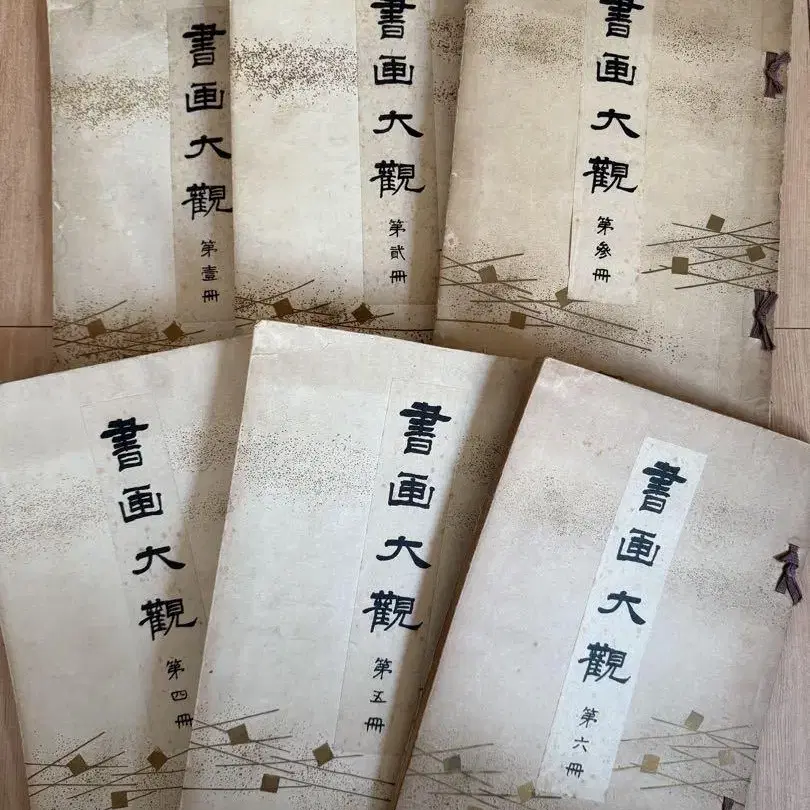 書画大觀
第壹冊
書画大觀
第貳冊
書画大觀
第参冊
書画大觀
第四冊
書画大觀
第五冊
書画大觀
第六冊